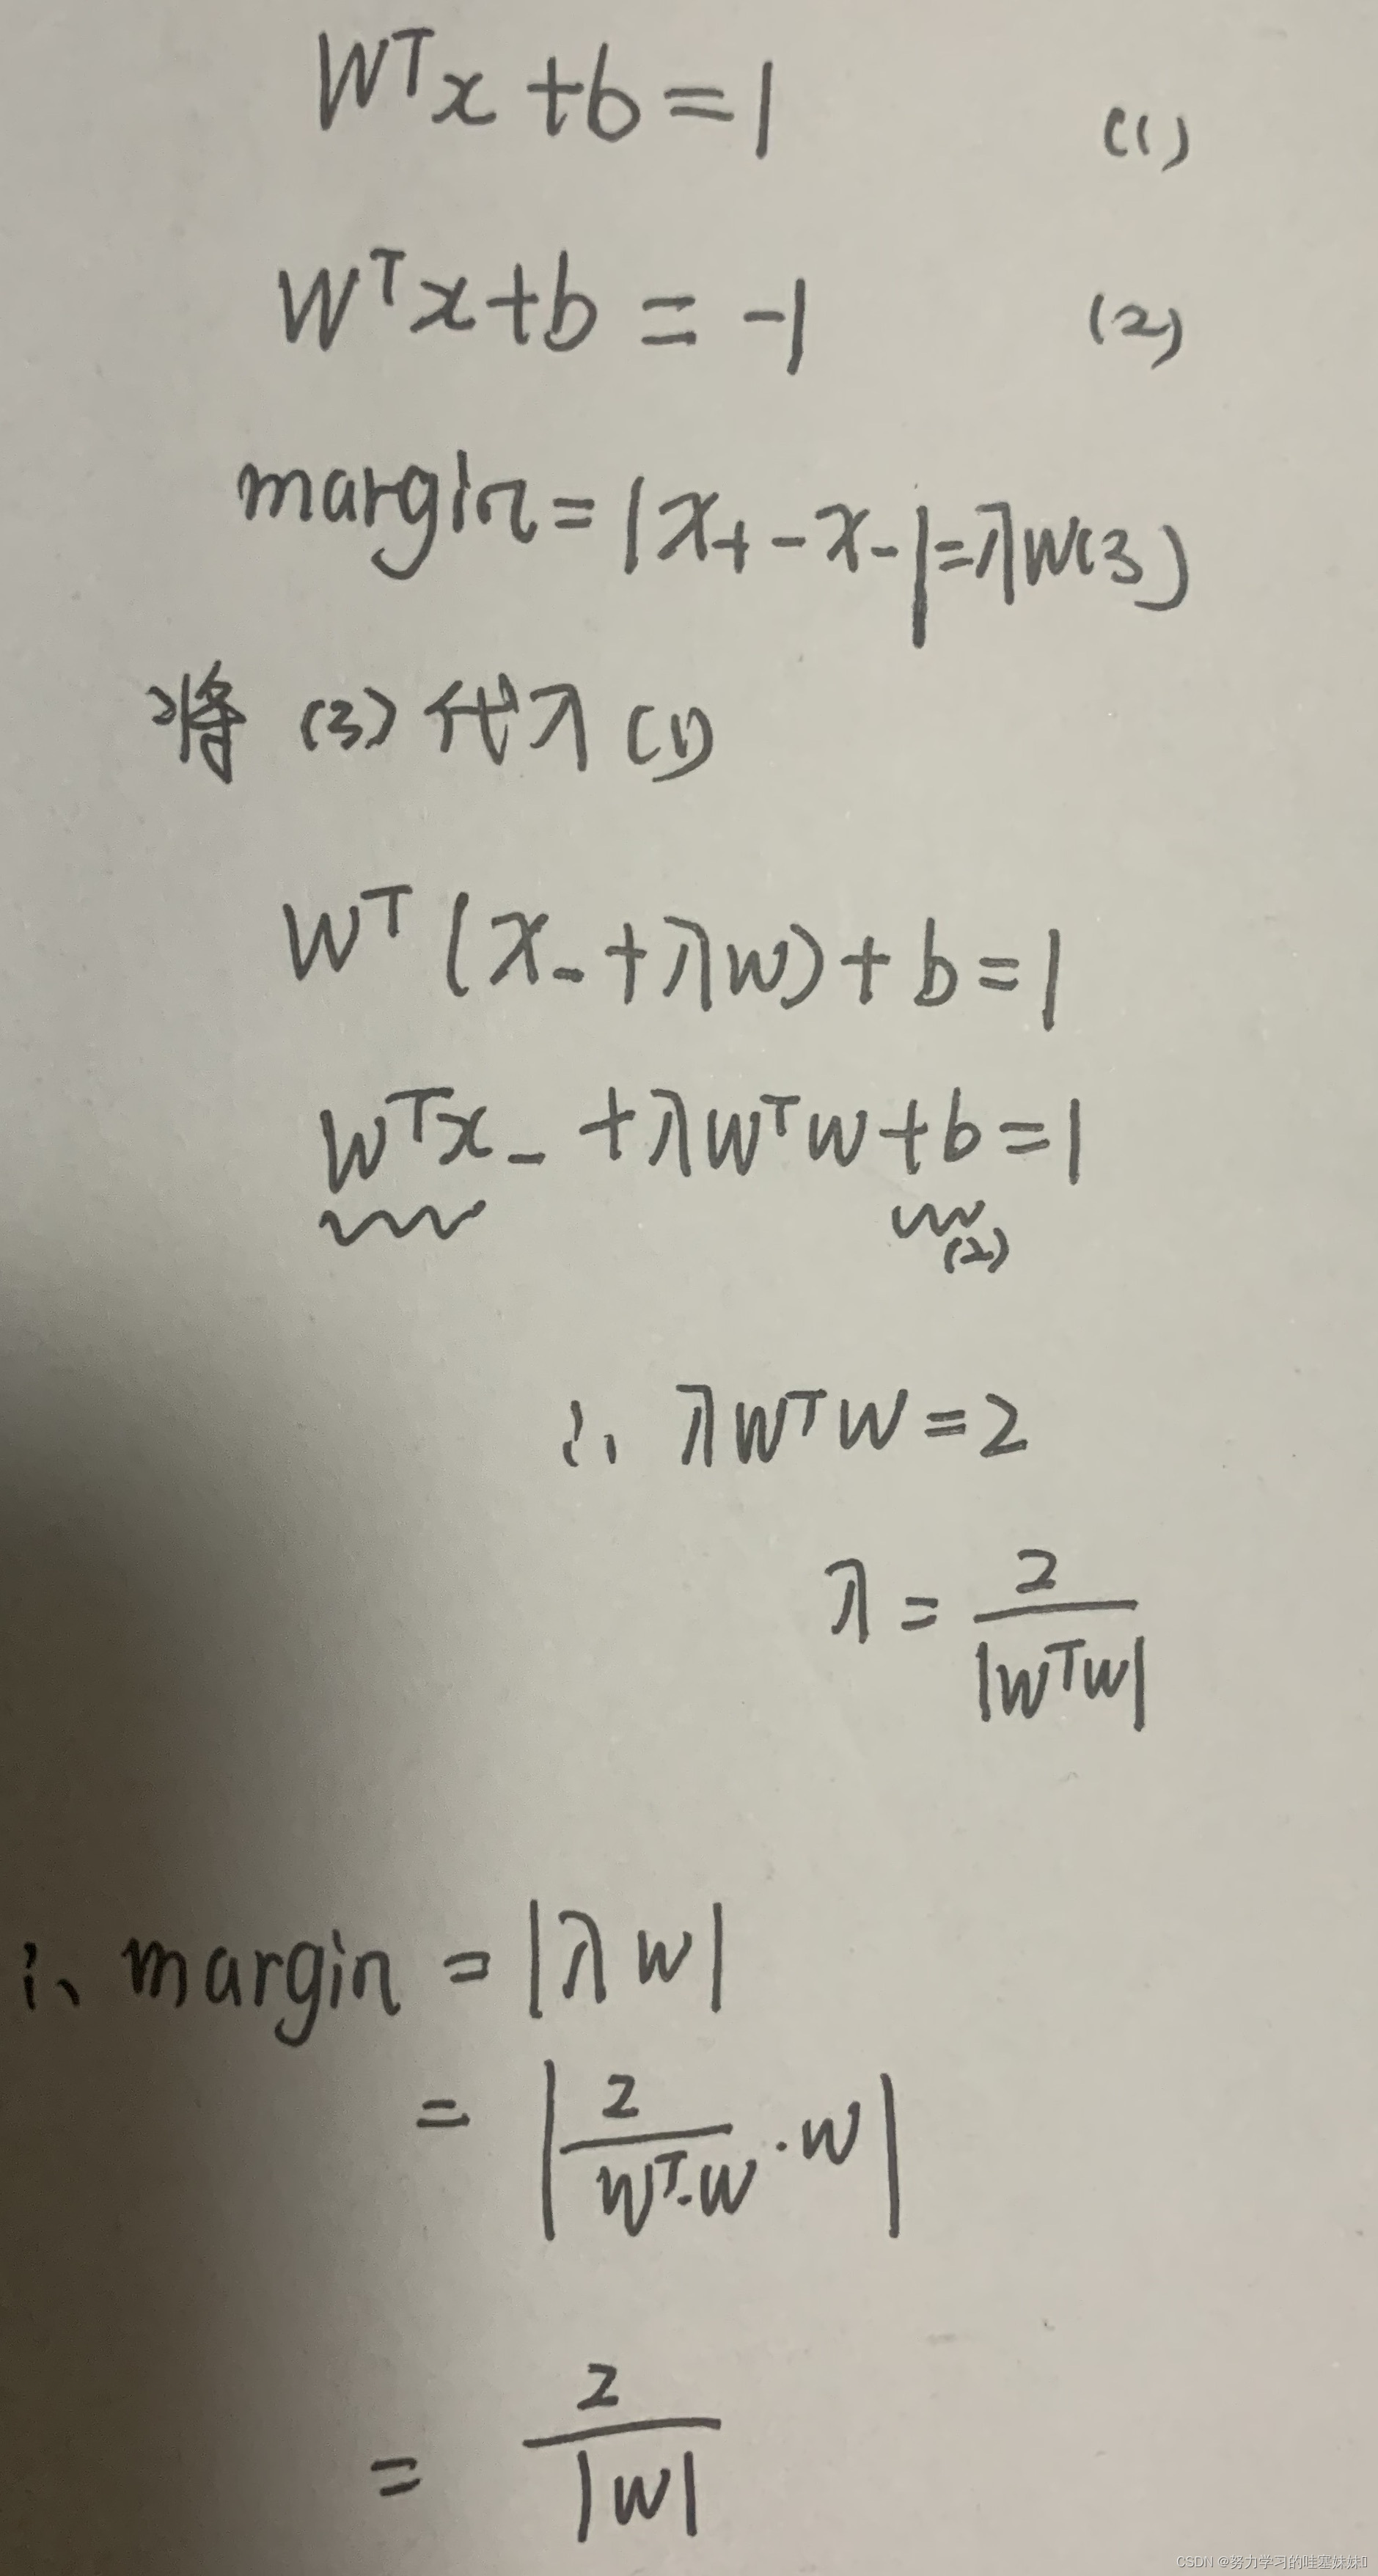 Wᵀx+b=1 (1)
Wᵀx+b=-1 (2)
margin=|x₊-x₋|=λW(3)
将(3)代入(1)
Wᵀ(x₋+λW)+b=1
Wᵀx₋+λWᵀW+b=1
(2)
∴ λWᵀW=2
λ=2/|WᵀW|
∴ margin=|λW|
=|2/(Wᵀ·W)·W|
=2/|W|
CSDN @努力学习的哇塞妹妹